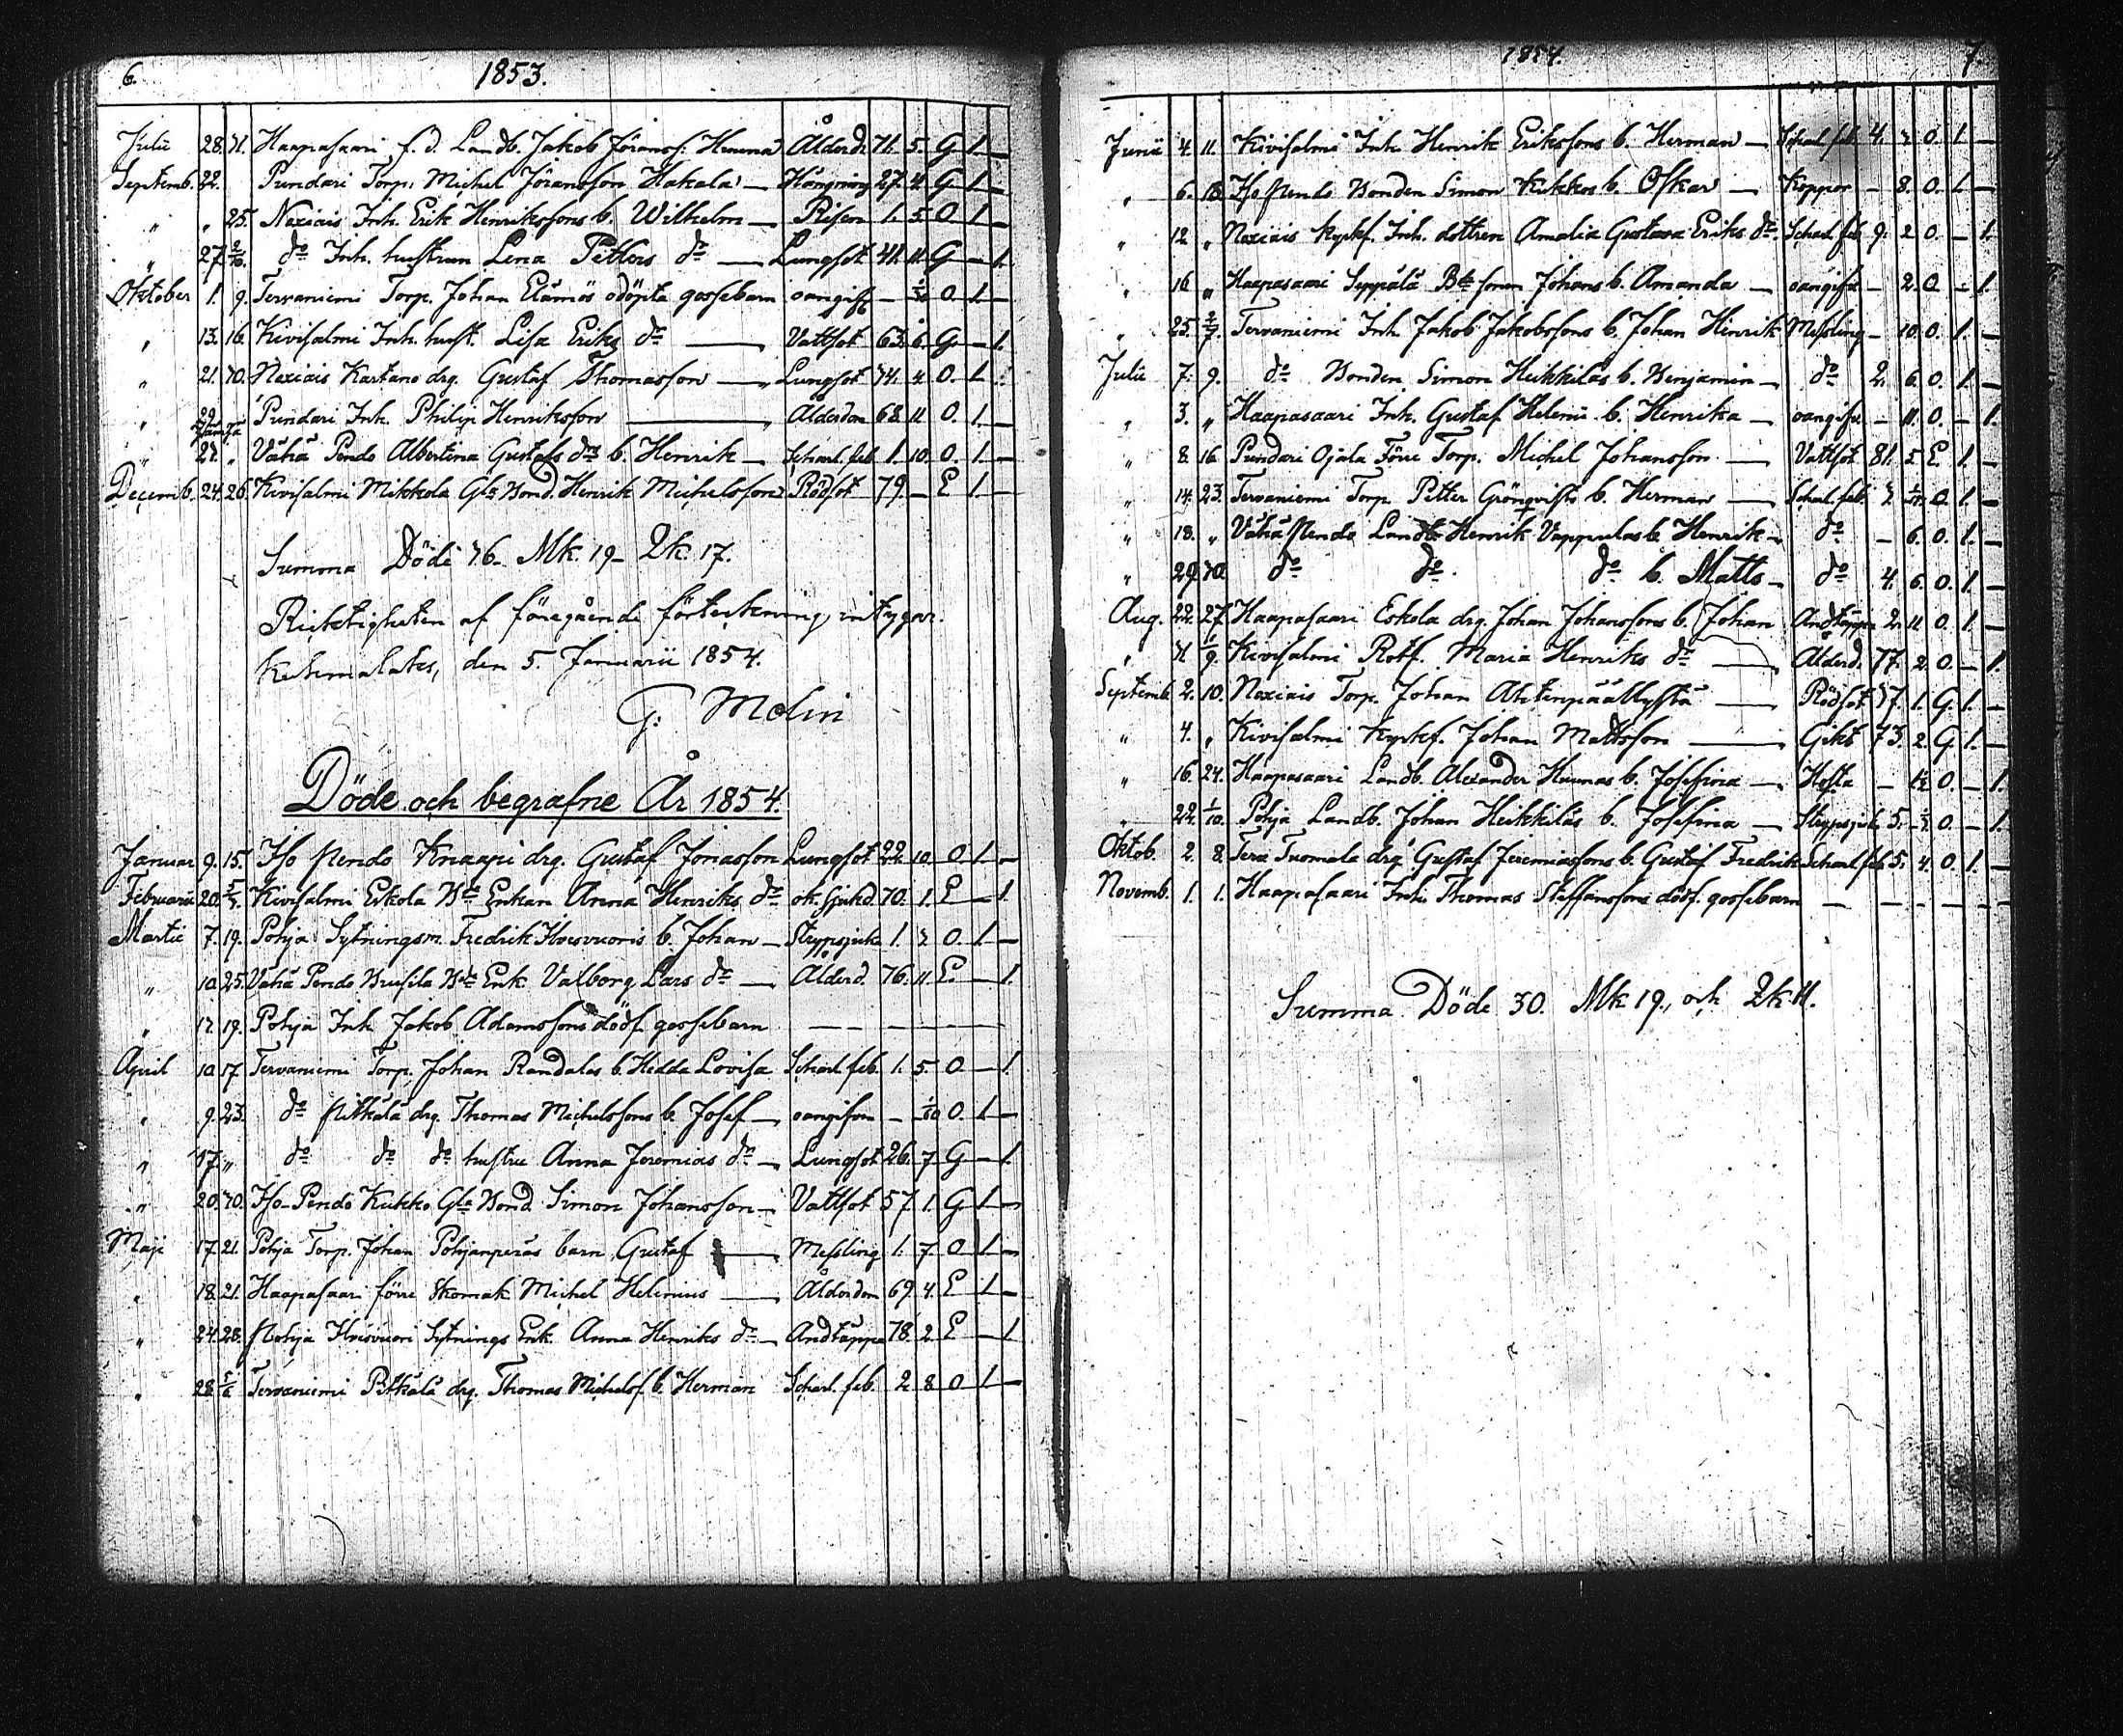 6. 1853.
Julii 28. 31. Haapasaari f. d. Landb. Jakob Jöranss. Hunna Ålderd. 71. 5. G. 1. —
Septemb. 22. Pundari Torp. Michel Jöransson Hakala — Hängning 27. 4. G 1. —
" " 25. Naxiais Inh. Erik Henrikssons b. Wilhelm — Risen 1. 5. O. 1. —
" 27. 2/10. do Inh. hustrun Lena Petters dr — Lungsot 41. 11. G — 1.
Oktober 1. 9. Tervaniemi Torp. Johan Elämös odöpta gossebarn oangift — O. 1. —
" 13. 16. Kivisalmi Inh. hust. Lisa Eriks dr — Vattsot 63. 6. G. — 1.
" 21. 30. Naxiais Kartano drg. Gustaf Thomasson — Lungsot 74. 4. O. 1. —
" 29. Pundari Inh. Philip Henriksson — Ålderdom 68. 11. O. 1. —
" 27. " Vähä Pendo Albertina Gustafs drs b. Henrik — Scharl. feb. 1. 10. O. 1. —
Decemb. 24. 26. Kivisalmi Mikkola Gle Bond. Henrik Michelsson Rödsot 79. — E 1. —
Summa Döde 36. Mk. 19 — Qk. 17.
Ricktigheten af föregående förteckning, intygar.
Kustemalaks, den 5. Januarii 1854.
G. Molin
Döde och begrafne År 1854.
Januar 9. 15. Iso Pendo Knaapi drg. Gustaf Jonasson Lungsot 22. 10. O. 1. —
Februarii 20. Kivisalmi Eskola Bde Enkan Anna Henriks dr ok. Sjukd. 70. 1. E — 1.
Martii 7. 19. Pohja Sytningsm. Fredrik Hvisvuoris b. Johan — Strypsjuka 1. O. 1. —
" 10. 25. Vähä Pendo Busila Bde Enk. Valborg Lars dr — Ålderd. 76. 11. E. — 1.
" 17. 19. Pohja Inh. Jakob Adamssons dödf. gossebarn — — — —
April 10. 17. Tervaniemi Torp. Johan Randalas b. Hedda Lovisa Scharl. feb. 1. 5. O. — 1.
" 9. 23. do Pitkälä drg. Thomas Michelssons b. Josef — oangifven — O. 1. —
" 17. " do do do hustru Anna Jeremias dr — Lungsot 26. 7 G — 1.
" 20. 30. Iso-Pendo Kukko Gle Bond Simon Johansson — Vattsot 57. 1. G 1. —
Maji 17. 21. Pohja Torp. Johan Pohjanperäs barn Gustaf — Messling 1. 7. O 1. —
" 18. 21. Haapasaari förre Skomak. Michel Helenius — Ålderdom 69. 4. E 1. —
" 24. 28. Pohja Hvisvuori Sytnings Enk. Anna Henriks dr — Andtäppa 78. 2. E — 1.
" 28. 5/6 Tervaniemi Pitkälä drg. Thomas Michelss. b. Herman Scharl. feb. 2. 8 O 1. —
1854. 7.
Junii 4. 11. Kivisalmi Inh. Henrik Erikssons b. Herman — Scharl. feb. 4. O. 1. —
" 6. 18. Iso Pendo Bonden Simon Kukkos b. Oskar — Koppor — 8. O. 1. —
" 12. " Naxiais Kypkf. Inh. dottren Amalia Gustava Eriks dr. Scharl. feb. 9. 2. O. — 1.
" 16. " Haapasaari Seppälä Bde sonen Johans b. Amanda — oangifn — 2. O. — 1.
" 25. 2/7. Tervaniemi Inh. Jakob Jakobssons b. Johan Henrik Messling — 10. O. 1. —
Julii 7. 9. do Bonden Simon Heikkiläs b. Benjamin — do 2. 6. O. 1. —
" 3. " Haapasaari Inh. Gustaf Helenii b. Henrika — oangifv. — 11. O. — 1.
" 8. 16. Pundari Ojala Förre Torp. Michel Johansson — Vattsot 81. 5. E. 1. —
" 14. 23. Tervaniemi Torp. Petter Grönqvists b. Herman — Scharl. feb. O. 1. —
" 18. " Vähä Pendo Landb. Henrik Vappulas b. Henrik — do — 6. O. 1. —
" 29. 30. do do. do b. Matts — do 4. 6. O. 1. —
Aug. 22. 27. Haapasaari Eskola drg. Johan Johanssons b. Johan Andtäppa 2. 11. O. 1. —
" 31. Kivisalmi Rotf. Maria Henriks dr — Ålderd. 77. 2. O. — 1.
Septemb. 2. 10. Naxiais Torp. Johan Ahtenpäällystä — Rödsot 37. 1. G. 1. —
" 4. " Kivisalmi Kypkf. Johan Mattsson — Gikt 73. 2. G. 1. —
" 16. 24. Haapasaari Landb. Alexander Hunnas b. Josefina — Hosta — O. — 1.
" 22. 1/10. Pohja Landb. Johan Heikkiläs b. Josefina — Strypsjuk. 5. O. — 1.
Oktob. 2. 8. Tera Tuomala drg. Gustaf Jeremiassons b. Gustaf Fredrik Scharl. feb. 5. 4. O. 1. —
Novemb. 1. 1. Haapasaari Inh. Thomas Steffanssons dödf. gossebarn — — — —
Summa Döde 30. Mk. 19., och Qk. 11.